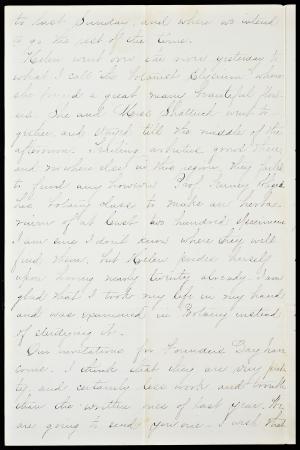 to last Sunday, and where we intend
to go the rest of the time.
Helen went over the moor yesterday to
what I call the Botanist Elysium where
she found a great many beautiful
She and Miss Shattuck went to-
gether and stayed till the middle of the
afternoon. Trailing arbutus grows there,
and nowhere else in this region, they failed
to find any however. Prof.
his botany class to make an herba-
rium of at least two hundred specimens
I am sure I don't know where they will
find them, but Helen prides herself
upon having nearly twenty already. I am
glad that I took my life in my hands
and was examined in Botany instead
of studying it.
Our invitations for Founders Day have
come. I think that they are very pret-
ty, and certainly less work and trouble
than the written ones of last year. We
are going to send you one. I wish that